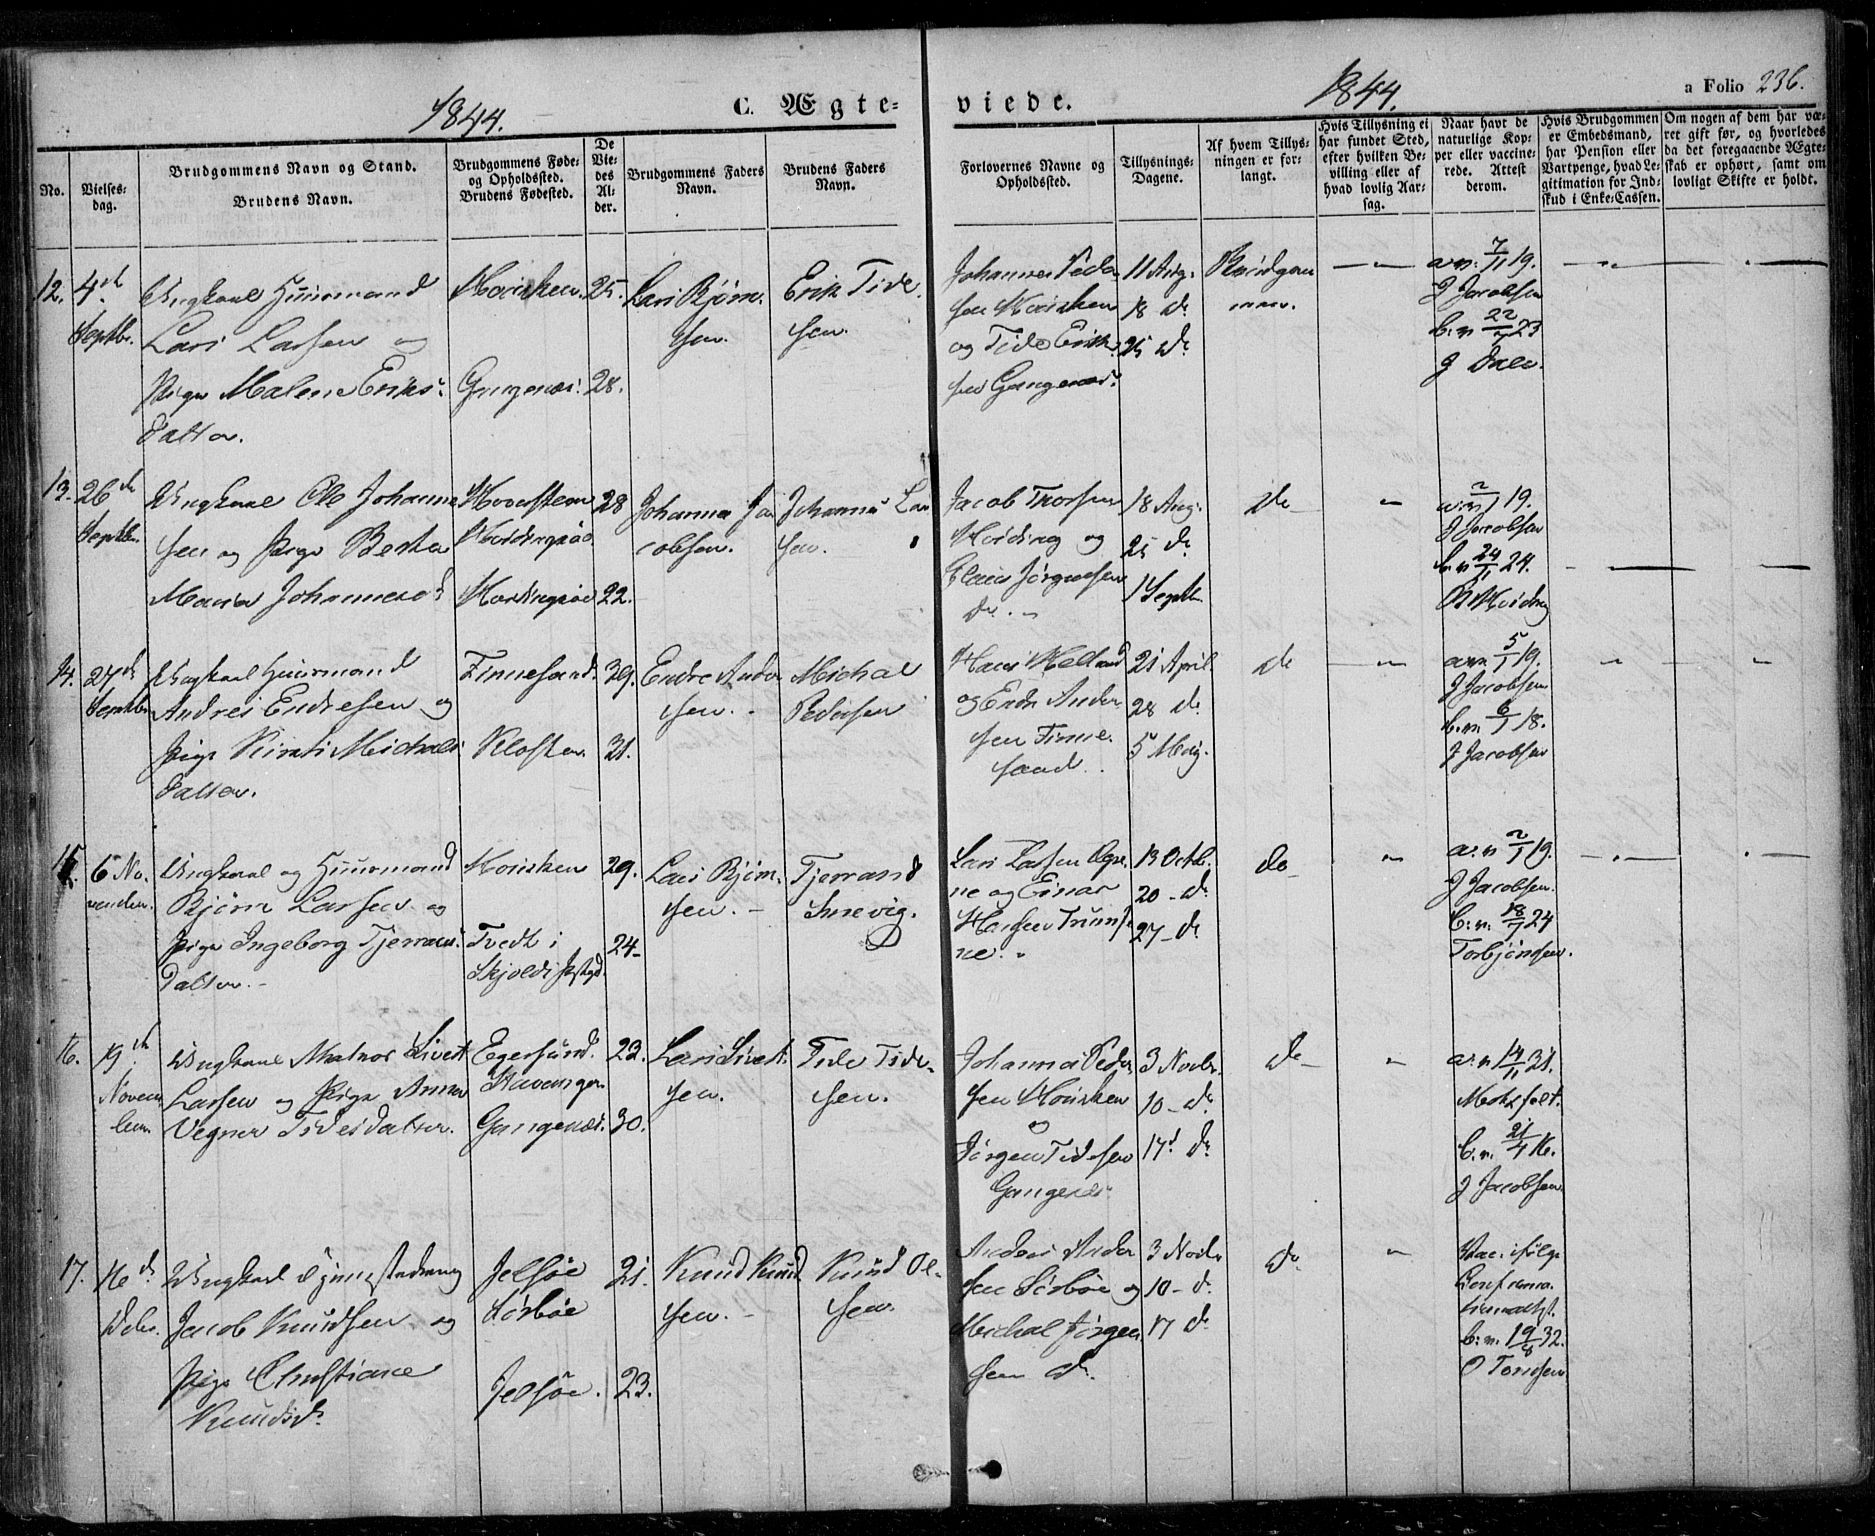 1844.
C. Ægte-
viede.
1844.
a Folio 236.
No.
Vielses-
dag.
Brudgommens Navn og Stand.
Brudens Navn.
Brudgommens Føde-
og Opholdssted.
Brudens Fødested.
De
Vie-
des
Al-
der.
Brudgommens Faders
Navn.
Brudens Faders
Navn.
Forlovernes Navne og
Opholdssted.
Tillysnings-
Dagene.
Af hvem Tillys-
ningen er for-
langt.
Hvis Tillysning ei
har fundet Sted,
efter hvilken Be-
villing eller af
hvad lovlig Aar-
sag.
Naar havt de
naturlige Kop-
per eller vaccine-
rede. Attest
derom.
Hvis Brudgommen
er Embedsmand,
har Pension eller
Vartpenge, hvad Le-
gitimation for Ind-
skud i Enke-Cassen.
Om nogen af dem har væ-
ret gift før, og hvorledes
da det foregaaende Ægte-
skab er ophørt, samt om
lovligt Skifte er holdt.
12.
4de
Septbr.
Ungkarl Huusmand
Lars Larsen og
Pige Malene Eriks-
datter.
25.
Gangenæs.
28.
Lars Bjørn-
sen.
Erik Tide-
sen.
og Tide Erik-
sen Gangenæs.
11 Aug.
18 d.
25 d.
Brudgom-
men.
a. v. 7/11 19.
J Jacobsen
b. v. 22/7 23
13.
26de
Septbr.
Ungkarl Ole Johanne-
sen og Pige Berta
Maria Johannesd.
28
22.
Johannes Ja-
cobsen.
Johannes Lar-
sen.
Jacob Thorsen
og
Claus Jørgensen
d.
18 Aug.
25 d.
1 Septbr.
do
a. v. 2/1 19.
J Jacobsen
b. v. 24/11 24.
14.
27de
Septbr.
Ungkarl Huusmand
Andreas Endresen og
Pige Kirsti Michals-
datter.
Finnesand.
Kloster.
29.
31.
Endre Ander-
sen.
Michal
Pedersen
og Endre Ander-
sen Finne-
sand.
21 April
28 d.
5 Maj.
do
a. v. 5/1 19.
J Jacobsen
b. v. 6/1 18.
J Jacobsen
15.
6 No-
vember.
Ungkarl og Huusmand
Bjørn Larsen og
Pige Ingeborg Tjerrans-
datter.
Tvedt i
Skjolds Prstgd.
29.
24
Lars Bjørn-
sen.
Tjerrand
Smevig.
Lars Larsen
og Einar
13 Octb.
20 d.
27 d.
do
a. v. 2/1 19.
J Jacobsen.
b. v. 18/7 24
Torbjørnsen.
16.
19de
Novem-
ber.
Ungkarl Matros Sivert
Larsen og Pige Anna
Vegner Tidesdatter.
Egersund.
Stavanger
Gangenæs.
23.
30.
Lars Sivert-
sen.
Tide Tide-
sen.
Johannes Peder-
sen
og
Jørgen Tidesen
Gangenæs
3 Novbr.
10 d.
17 d.
do
a. v. 14/11 31.
b. v. 21/4 16.
J Jacobsen
17.
16 d.
Debr.
Ungkarl
Jacob Knudsen og
Pige Christiane
Knudsd.
Jelsøe
Sørbøe
Jelsøe.
21.
23.
Knud Knud-
sen.
Knud Ol-
sen.
Anders Ander-
sen Sørbøe og
Michal Jørgen-
sen d.
3 Novbr.
10 d.
17 d.
do
Vac. ifølge
Confirma-
tionsattst.
b. v. 19/8 32.